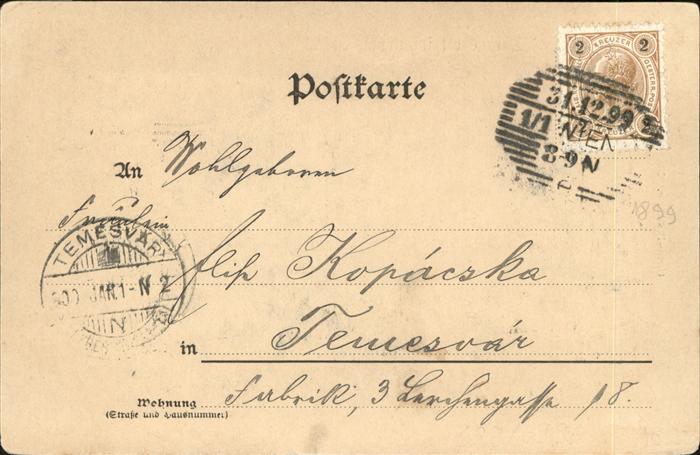 2 KREUZER 2
Postkarte
31.12.99
1/1 WIEN
8-9 N
An Wohlgeboren
1899
Fräulein
TEMESVÁR
900 JAN. 1-N 2
N
Kopácska
in Temesvár
Fabrik, 3 Lerchengasse 18.
Wohnung
(Straße und Hausnummer)